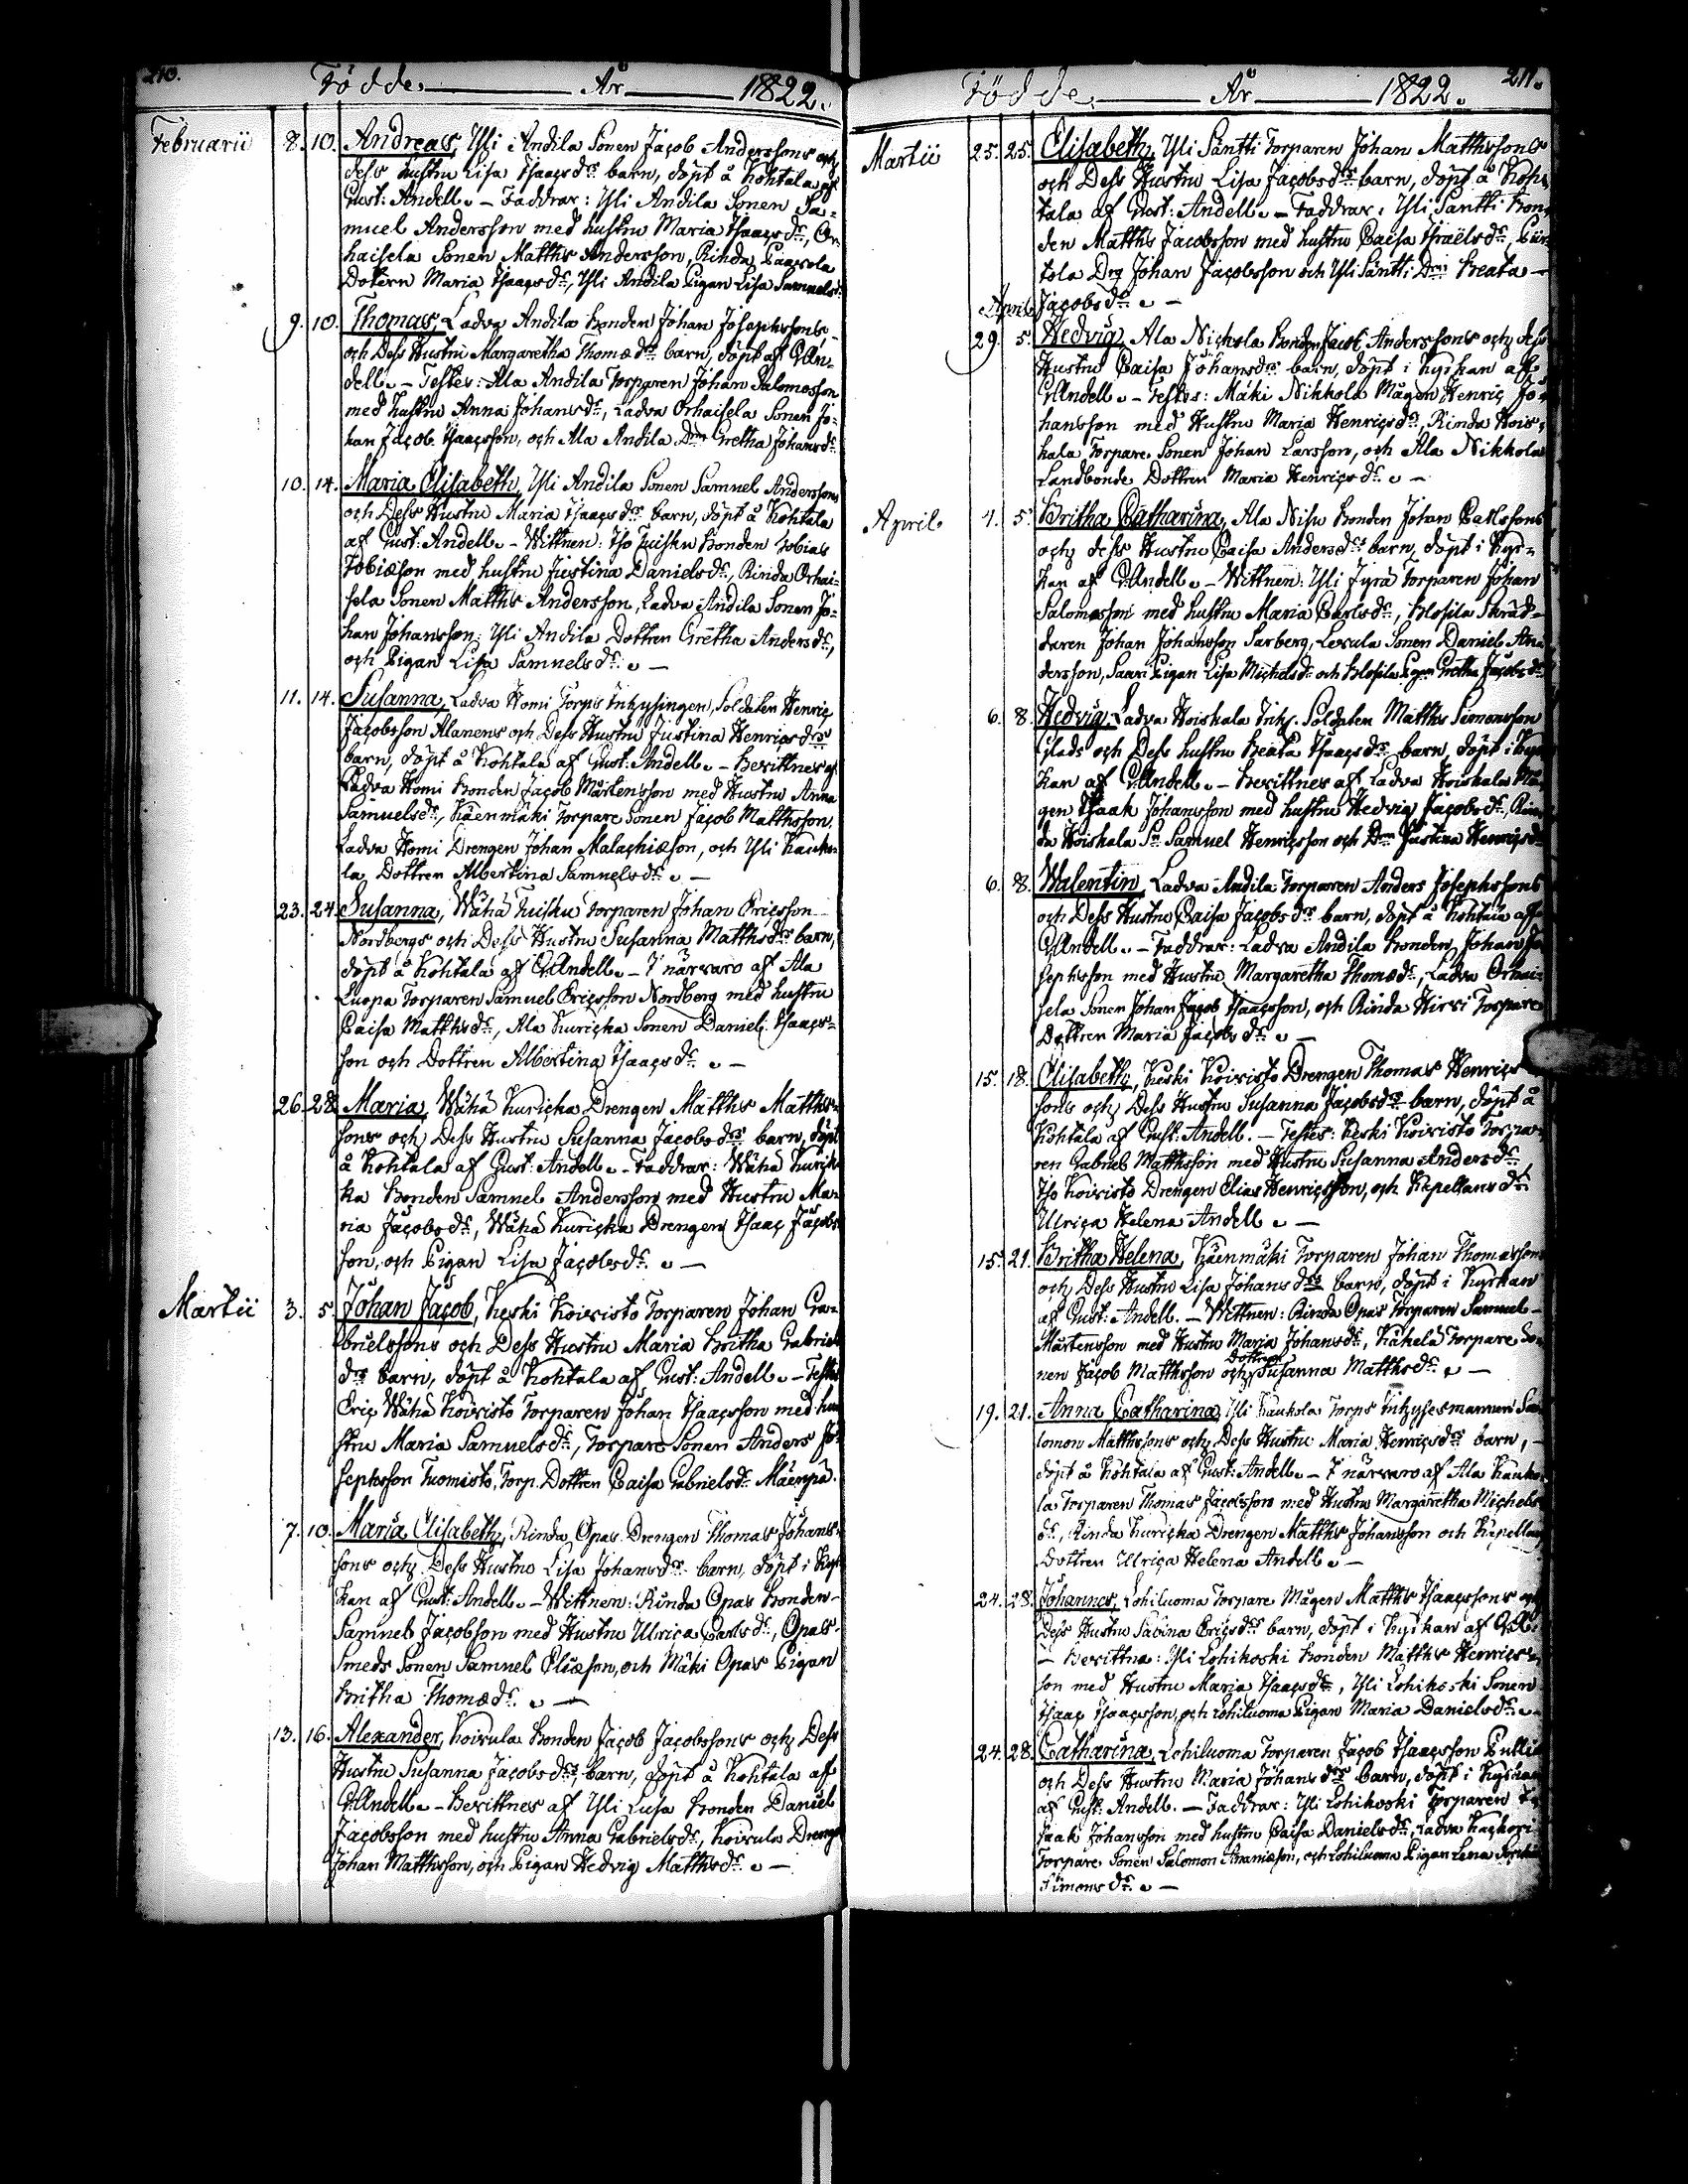 210.
Födde. År 1822.
Februarii 8. 10. Andreas, Yli Andila Sonen Jacob Anderssons och
dess hustru Lisa Isaacsdrs barn, döpt å Kohtala af
Gust: Andell. – Faddrar: Yli Andila Sonen Sa-
muel Andersson med hustru Maria Isaacsdr, Or-
haisela Sonen Matths Andersson, Rinda Paavola
Dotern Maria Isaacsdr, Yli Andila Pigan Lisa Samuelsdr
9. 10. Thomas, Ladva Andila Bonden Johan Josephssons
och Dess Hustru Margaretha Thomædrs barn, döpt af G:An-
dell. – Testes: Ala Andila Torparen Johan Salomosson
med hustru Anna Johansdr, Ladva Orhaisela Sonen Jo-
han Jacob Isaacsson, och Ala Andila Drn Gretha Johansdr
10. 14. Maria Elisabeth, Yli Andila Sonen Samuel Anderssons
och Dess Hustru Maria Isaacsdrs barn, döpt å Kohtala
af Gust: Andell. – Wittnen: Iso Tuisku Bonden Tobias
Tobiæson med hustru Justina Danielsdr, Rinda Orhai-
sela Sonen Matths Andersson, Ladva Andila Sonen Jo-
han Johansson, Yli Andila Dottren Gretha Andersdr,
och Pigan Lisa Samuelsdr. –
11. 14. Susanna, Ladva Homi Torps Inhysingen, Soldaten Henric
Jacobsson Alanens och Dess Hustru Justina Henricsdrs
barn, döpt å Kohtala af Gust: Andell. – Bevittnes af
Ladva Homi Bonden Jacob Mårtensson med Hustru Anna
Samuelsdr, Käenmäki Torpare Sonen Jacob Matthsson,
Ladva Homi Drengen Johan Malachiæson, och Yli Kauko-
la Dottren Albertina Samuelsdr. –
23. 24. Susanna, Wähä Tuisku Torparen Johan Ericsson
Nordbergs och Dess Hustru Susanna Matthsdrs barn,
döpt å Kohtala af G:Andell. – I närvaro af Ala
Luopa Torparen Samuel Ericsson Nordberg med hustru
Caisa Matthsdr, Ala Kuricka Sonen Daniel Isaacs-
son och Dottren Albertina Isaacsdr. –
26. 28. Maria, Wähä Kuricka Drengen Matths Matths-
sons och Dess Hustru Susanna Jacobsdrs barn, döpt
å Kohtala af Gust: Andell. – Faddrar: Wähä Kuric-
ka Bonden Samuel Andersson med Hustru Ma-
ria Jacobsdr, Wähä Kuricka Drengen Isaac Jacobs-
son, och Pigan Lisa Jacobsdr. –
Martii 3. 5. Johan Jacob, Keski Koivisto Torparen Johan Ga-
brielssons och Dess Hustru Maria Britha Gabriels
drs barn, döpt å Kohtala af Gust: Andell. – Testes
Eric Wähä Koivisto Torparen Johan Isaacsson med hu-
stru Maria Samuelsdr, Torpare Sonen Anders Jo-
sephsson Tuomisto, Torp. Dottren Caisa Gabrielsdr Mäenpä.
7. 10. Maria Elisabeth, Rinda Opas Drengen Thomas Johans-
sons och Dess Hustru Lisa Johansdrs barn, döpt i Kyr-
kan af Gust: Andell. – Wittnen: Rinda Opas Bonden
Samuel Jacobsson med Hustru Ulrica Carlsdr, Opas
Smeds Sonen Samuel Eliæson, och Mäki Opas Pigan
Britha Thomædr. –
13. 16. Alexander, Koivula Bonden Jacob Jacobssons och Dess
Hustru Susanna Jacobsdrs barn, döpt å Kohtala af
G:Andell. – Bevittnes af Yli Lusa Bonden Daniel
Jacobsson med hustru Anna Gabrielsdr, Koivula Dreng
Johan Matthsson, och Pigan Hedvig Matthsdr. –
211.
Födde. År 1822.
Martii 25. 25. Elisabeth, Yli Säntti Torparen Johan Matthssons
och Dess Hustru Lisa Jacobsdrs barn, döpt å Koh-
tala af Gust: Andell. – Faddrar: Yli Säntti Bon-
den Matths Jacobsson med hustru Caisa Israëlsdr,
Drg Johan Jacobsson och Yli Säntti Drn Beata
Jacobsdr. –
Aprils
29. 5. Hedvig, Ala Nickola Bonden Jacob Anderssons och dess
Hustru Caisa Johansdrs barn, döpt i Kyrkan af
G:Andell. – Testes: Mäki Nikkola Mågen Henric Jo-
hansson med Hustru Maria Henricsdr, Rinda Hois-
kala Torpare Sonen Johan Larsson, och Ala Nikkola
Landbonde Dottren Maria Henricsdr. –
April 4. 5. Britha Catharina, Ala Nisu Bonden Johan Carlssons
och dess Hustru Caisa Andersdrs barn, döpt i Kyr-
kan af G:Andell. – Wittnen: Yli Jyrä Torparen Johan
Salomosson med hustru Maria Carlsdr, Skräd-
daren Johan Johansson Sarberg, Sonen Daniel An-
dersson, Saari Pigan Lisa Michelsdr och Pigan Gretha Jacobsdr
6. 8. Hedvig, Ladva Hoiskala Inhys. Soldaten Matths Simonsson
Glads och Dess hustru Beata Isaacsdrs barn, döpt i Kyr-
kan af G:Andell. – Bevittnes af Ladva Hoiskala Må-
gen Isaak Johansson med hustru Hedvig Jacobsdr, Rin-
da Hoiskala Sn Samuel Henricsson och Drn Justina Henricsdr
6. 8. Valentin, Ladva Andila Torparen Anders Josephssons
och Dess Hustru Caisa Jacobsdrs barn, döpt å Kohtala af
G:Andell. – Faddrar: Ladva Andila Bonden Johan Jo-
sephsson med Hustru Margaretha Thomædr, Ladva Orhai-
sela Sonen Johan Jacob Isaacsson, och Rinda Hirvi Torpare
Dottren Maria Jacobsdr. –
15. 18. Elisabeth, Keski Koivisto Drengen Thomas Henrics-
sons och Dess Hustru Susanna Jacobsdrs barn, döpt å
Kohtala af Gust. Andell. – Testes: Keski Koivisto Torpa-
ren Gabriel Matthsson med Hustru Susanna Andersdr
Iso Koivisto Drengen Elias Henricsson, och Kapellansdr
Ulrica Helena Andell. –
15. 21. Britha Helena, Käenmäki Torparen Johan Thomassons
och Dess Hustru Lisa Johansdrs barn, döpt i Kyrkan
af Gust: Andell. – Wittnen: Rinda Opas Torparen Samuel
Mårtensson med Hustru Maria Johansdr, Käkelä Torpare So-
nen Jacob Matthsson och Dottren Susanna Matthsdr. –
19. 21. Anna Catharina, Yli Kaukola Torps Inhysesmannen Sa-
lomon Matthssons och Dess Hustru Maria Henricsdrs barn, –
döpt å Kohtala af Gust: Andell. – I närvaro af Ala Kauko-
la Torparen Thomas Jacobsson med Hustru Margaretha Michels
dr, Rinda Kuricka Drengen Matths Johansson och Kapellans
Dottren Ulrica Helena Andell. –
24. 28. Johannes, Lohiluoma Torpare Mågen Matths Isaacssons och
Dess Hustru Sabina Ericsdrs barn, döpt i Kyrkan af G:A.
– Bevittna: Yli Lohikoski Bonden Matths Henrics-
son med Hustru Maria Isaacsdr, Yli Lohikoski Sonen
Isaac Isaacsson, och Lohiluoma Pigan Maria Danielsdr. –
24. 28. Catharina, Lohiluoma Torparen Jacob Isaacsson
och Dess Hustru Maria Johansdrs barn, döpt i Kyrkan
af Gust. Andell. – Faddrar: Yli Lohikoski Torparen I-
saak Johansson med hustru Caisa Danielsdr, Ladva
Torpare Sonen Salomon Ananiæson, och Lohiluoma Pigan Lena
Simonsdr. –